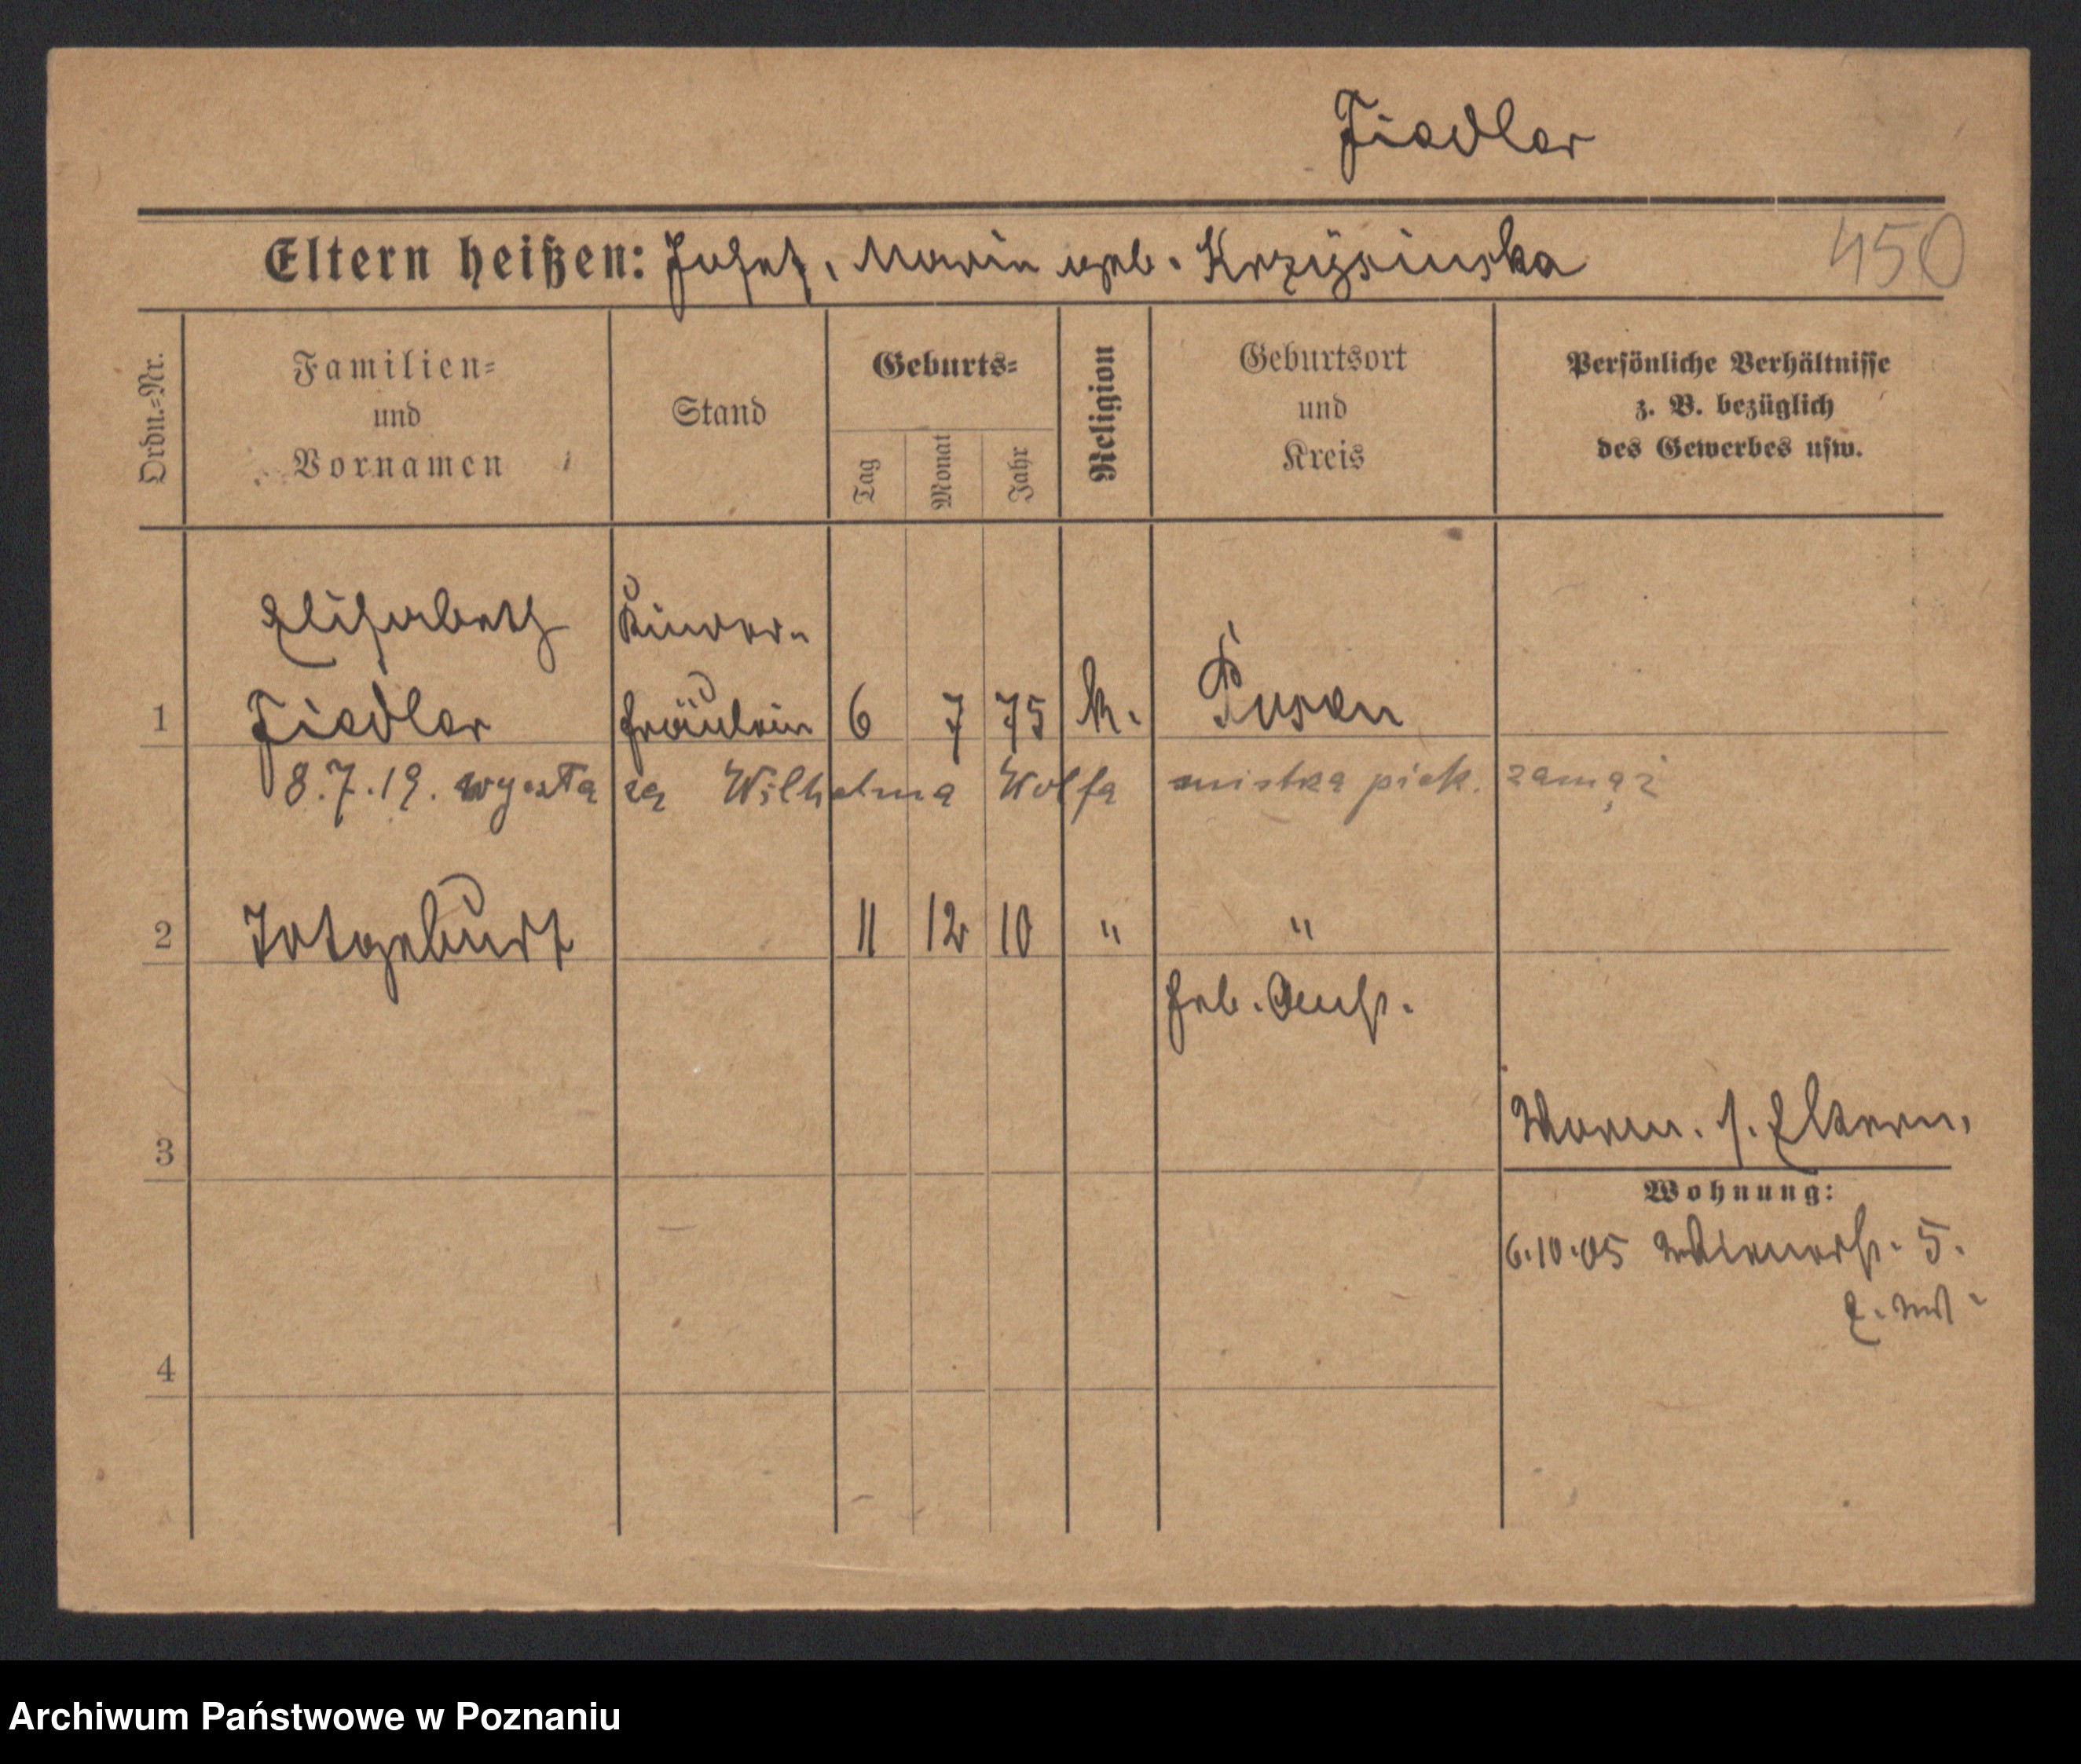 Fiedler
Eltern heißen: Josef, Maria geb. Krzyżinska
450
Ordn.=Nr.
Familien=
und
Vornamen
Stand
Geburts=
Tag
Monat
Jahr
Religion
Geburtsort
und
Kreis
Persönliche Verhältnisse
z. B. bezüglich
des Gewerbes usw.
Elisabeth Kinder-
1 Fiedler fräulein 6 7 75 k. Posen
8.7.19. wyszła za Wilhelma Wolfa mistrza piek. zamąż
2 Totgeburt 11 12 10 " "
Heb. Anst.
3
Worm. s. Eltern.
Wohnung:
6.10.05 5.
4
Archiwum Państwowe w Poznaniu